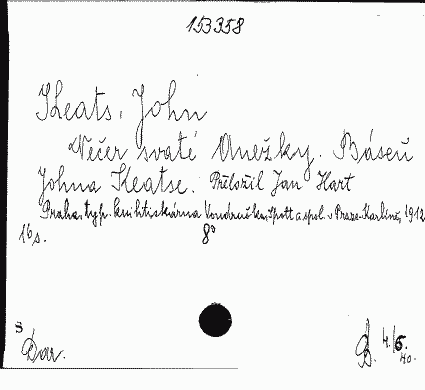 153358
Keats, John
Večer svaté Anežky. Báseň
Johna Keatse. Přeložil Jan Hart
Praha, typ. knihtiskárna Voudruška, Spott a spol. v Praze-Karlíně, 1912
16 s. 8°
s
Dar.
4./5.
40.